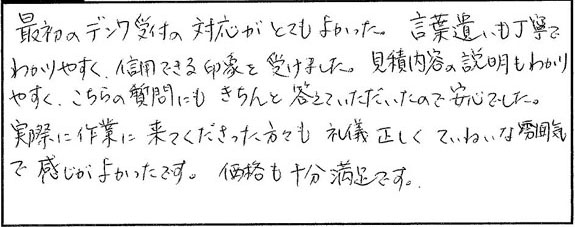 最初のデンワ受付の対応がとてもよかった。言葉遣いも丁寧で
わかりやすく、信用できる印象を受けました。見積内容の説明もわかり
やすく、こちらの質問にもきちんと答えていただいたので安心でした。
実際に作業に来てくださった方々も礼儀正しくていねいな雰囲気
で感じがよかったです。価格も十分満足です。